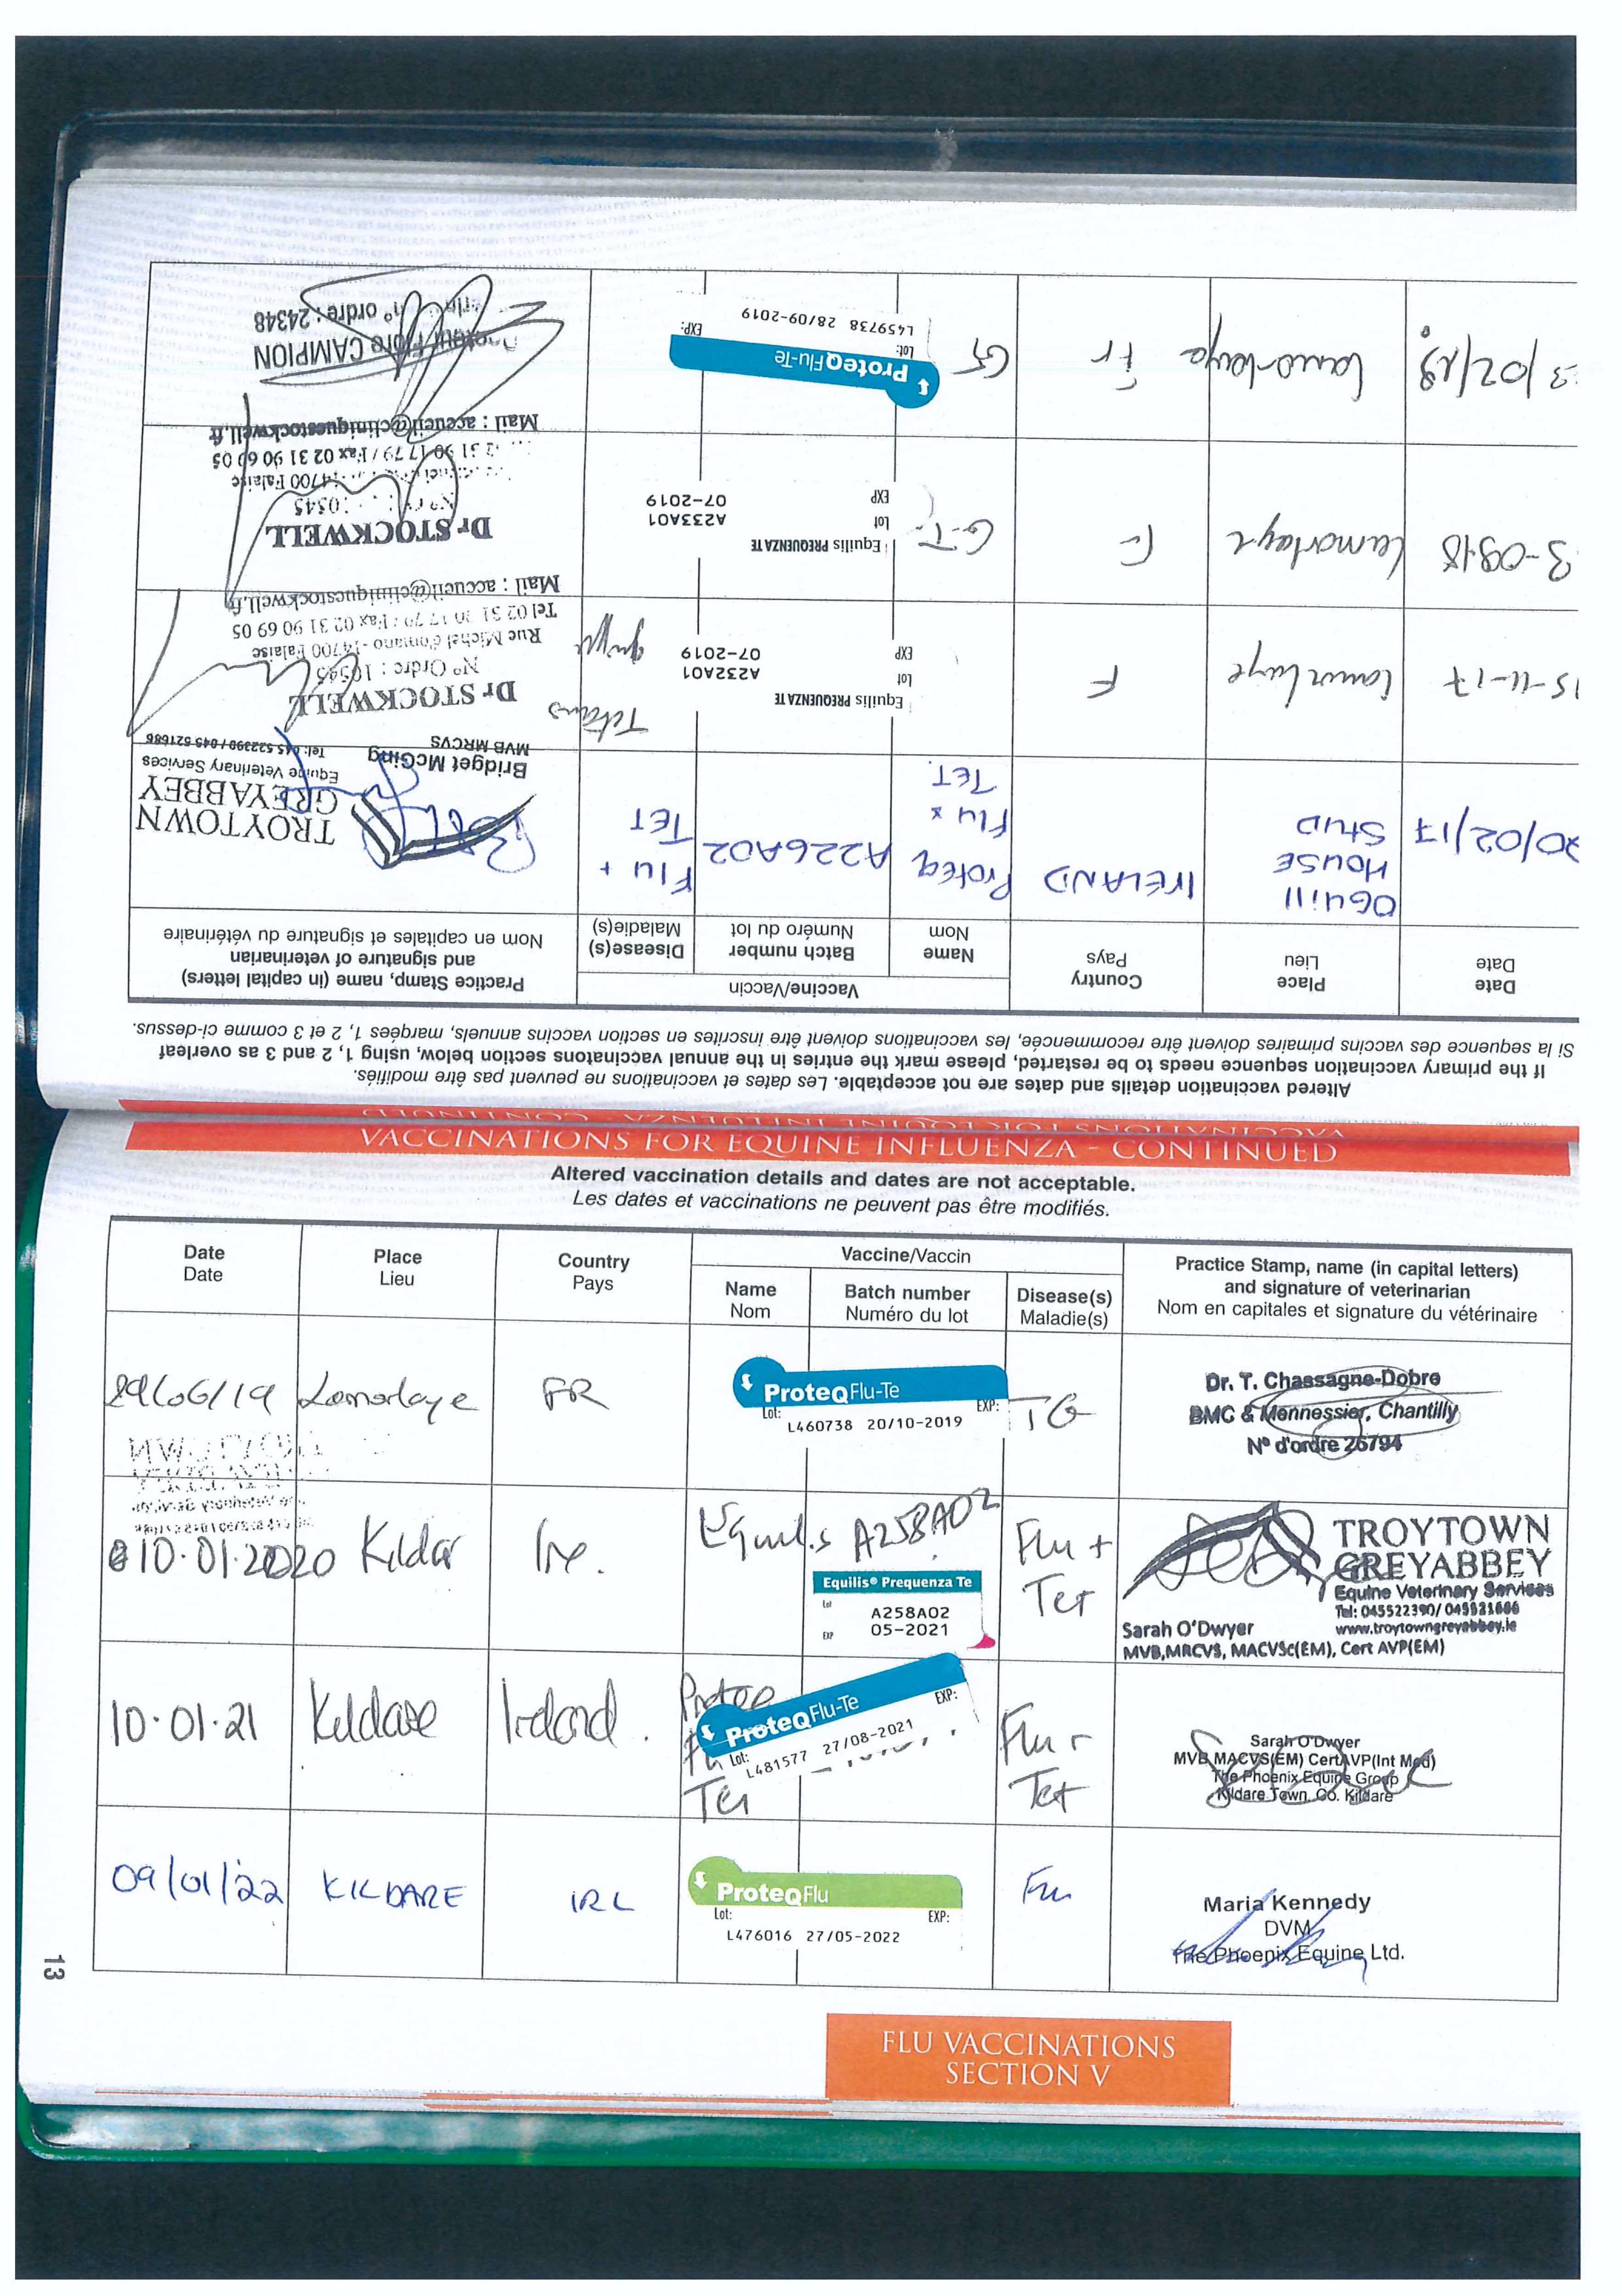 VACCINATIONS FOR EQUINE INFLUENZA - CONTINUED
Altered vaccination details and dates are not acceptable. Les dates et vaccinations ne peuvent pas être modifiés.
If the primary vaccination sequence needs to be restarted, please mark the entries in the annual vaccinatons section below, using 1, 2 and 3 as overleaf
Si la sequence des vaccins primaires doivent être recommencée, les vaccinations doivent être inscrites en section vaccins annuels, marqées 1, 2 et 3 comme ci-dessus.
Date
Date
Place
Lieu
Country
Pays
Vaccine/Vaccin
Name
Nom
Batch number
Numéro du lot
Disease(s)
Maladie(s)
Practice Stamp, name (in capital letters)
and signature of veterinarian
Nom en capitales et signature du vétérinaire
20/02/17
HOUSE
STUD
IRELAND
Proteq
Flu x
TET.
A226A02
Flu +
TET
TROYTOWN
GREYABBEY
Equine Veterinary Services
Tel: 045 522390 / 045 521686
Bridget McGing
MVB MRCVS
15-11-17
Lamorlaye
F
Equilis PREQUENZA TE
Lot
A232A01
EXP
07-2019
Tetanos
grippe
Dr STOCKWELL
N° Ordre : 10545
Rue Michel d'ornano - 14700 Falaise
Tel 02 31 90 17 79 / Fax 02 31 90 69 05
Mail : accueil@cliniquestockwell.fr
3-0918
Lamorlaye
F
G-T
Equilis PREQUENZA TE
Lot
A233A01
EXP
07-2019
Dr STOCKWELL
10545
14700 Falaise
31 90 17 79 / Fax 02 31 90 69 05
Mail : accueil@cliniquestockwell.fr
3/02/19
Lamorlaye
Fr
ProteqFlu-Te
Lot:
EXP:
L459738 28/09-2019
Flore CAMPION
n° ordre : 24348
VACCINATIONS FOR EQUINE INFLUENZA - CONTINUED
Altered vaccination details and dates are not acceptable.
Les dates et vaccinations ne peuvent pas être modifiés.
Date
Date
Place
Lieu
Country
Pays
Vaccine/Vaccin
Name
Nom
Batch number
Numéro du lot
Disease(s)
Maladie(s)
Practice Stamp, name (in capital letters)
and signature of veterinarian
Nom en capitales et signature du vétérinaire
29/06/19
Lamorlaye
FR
ProteqFlu-Te
Lot:
EXP:
L460738 20/10-2019
TG
Dr. T. Chassagne-Dobre
BMC & Mennessier, Chantilly
N° d'ordre 26794
10.01.2020
Kildar
Ire.
Equilis A258A02
Equilis® Prequenza Te
Lot
A258A02
EXP
05-2021
Flu +
Tet
TROYTOWN
GREYABBEY
Equine Veterinary Services
Tel: 045522390/ 045521686
www.troytowngreyabbey.ie
Sarah O'Dwyer
MVB,MRCVS, MACVSc(EM), Cert AVP(EM)
10.01.21
Kildare
Ireland.
ProteqFlu-Te
Lot:
EXP:
L481577 27/08-2021
Tet
Flu
Tet
Sarah O'Dwyer
MVB MACVS(EM) CertAVP(Int Med)
The Phoenix Equine Group
Kildare Town, Co. Kildare
09/01/22
KILDARE
IRL
ProteqFlu
Lot:
EXP:
L476016 27/05-2022
Flu
Maria Kennedy
DVM
The Phoenix Equine Ltd.
13
FLU VACCINATIONS
SECTION V